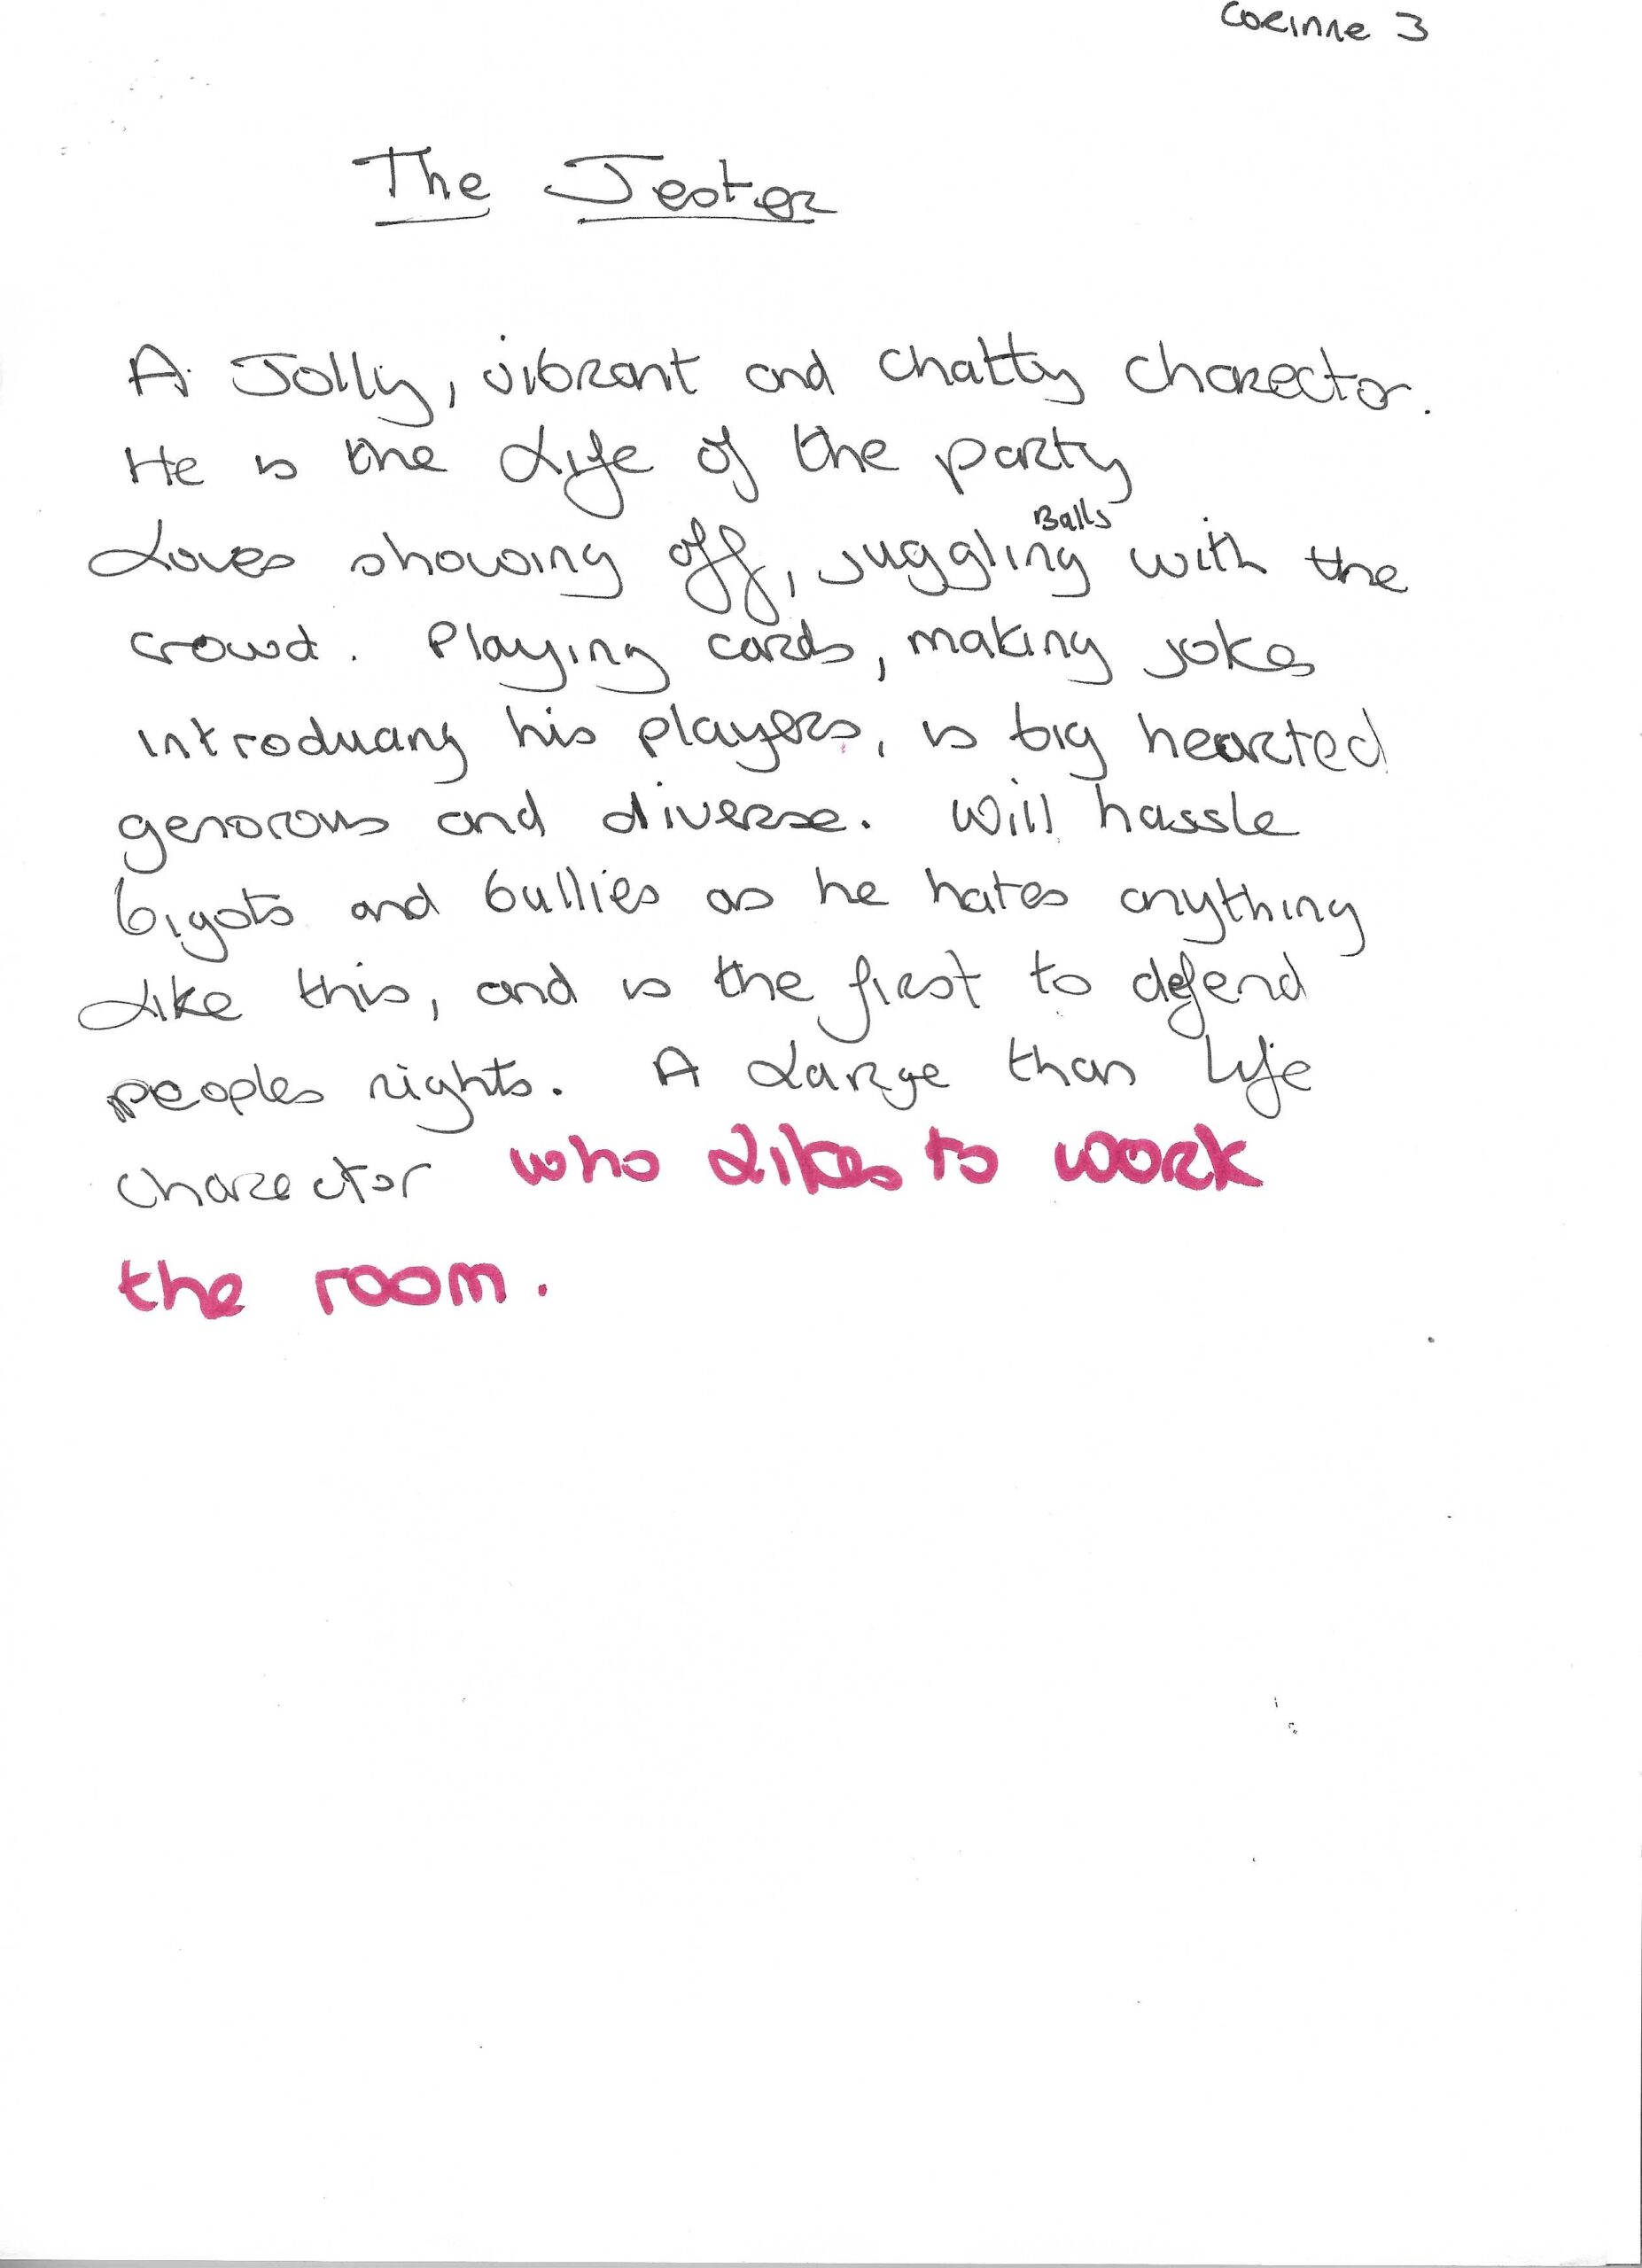 Corinne 3
The Jester
A Jolly, vibrant and chatty charector.
He is the Life of the party
Loves showing off, juggling Balls with the
crowd. Playing cards, making jokes
introducing his players, is big hearted
generous and diverse. Will hassle
bigots and bullies as he hates anything
Like this, and is the first to defend
peoples rights. A Large than life
charector who Likes to work
the room.